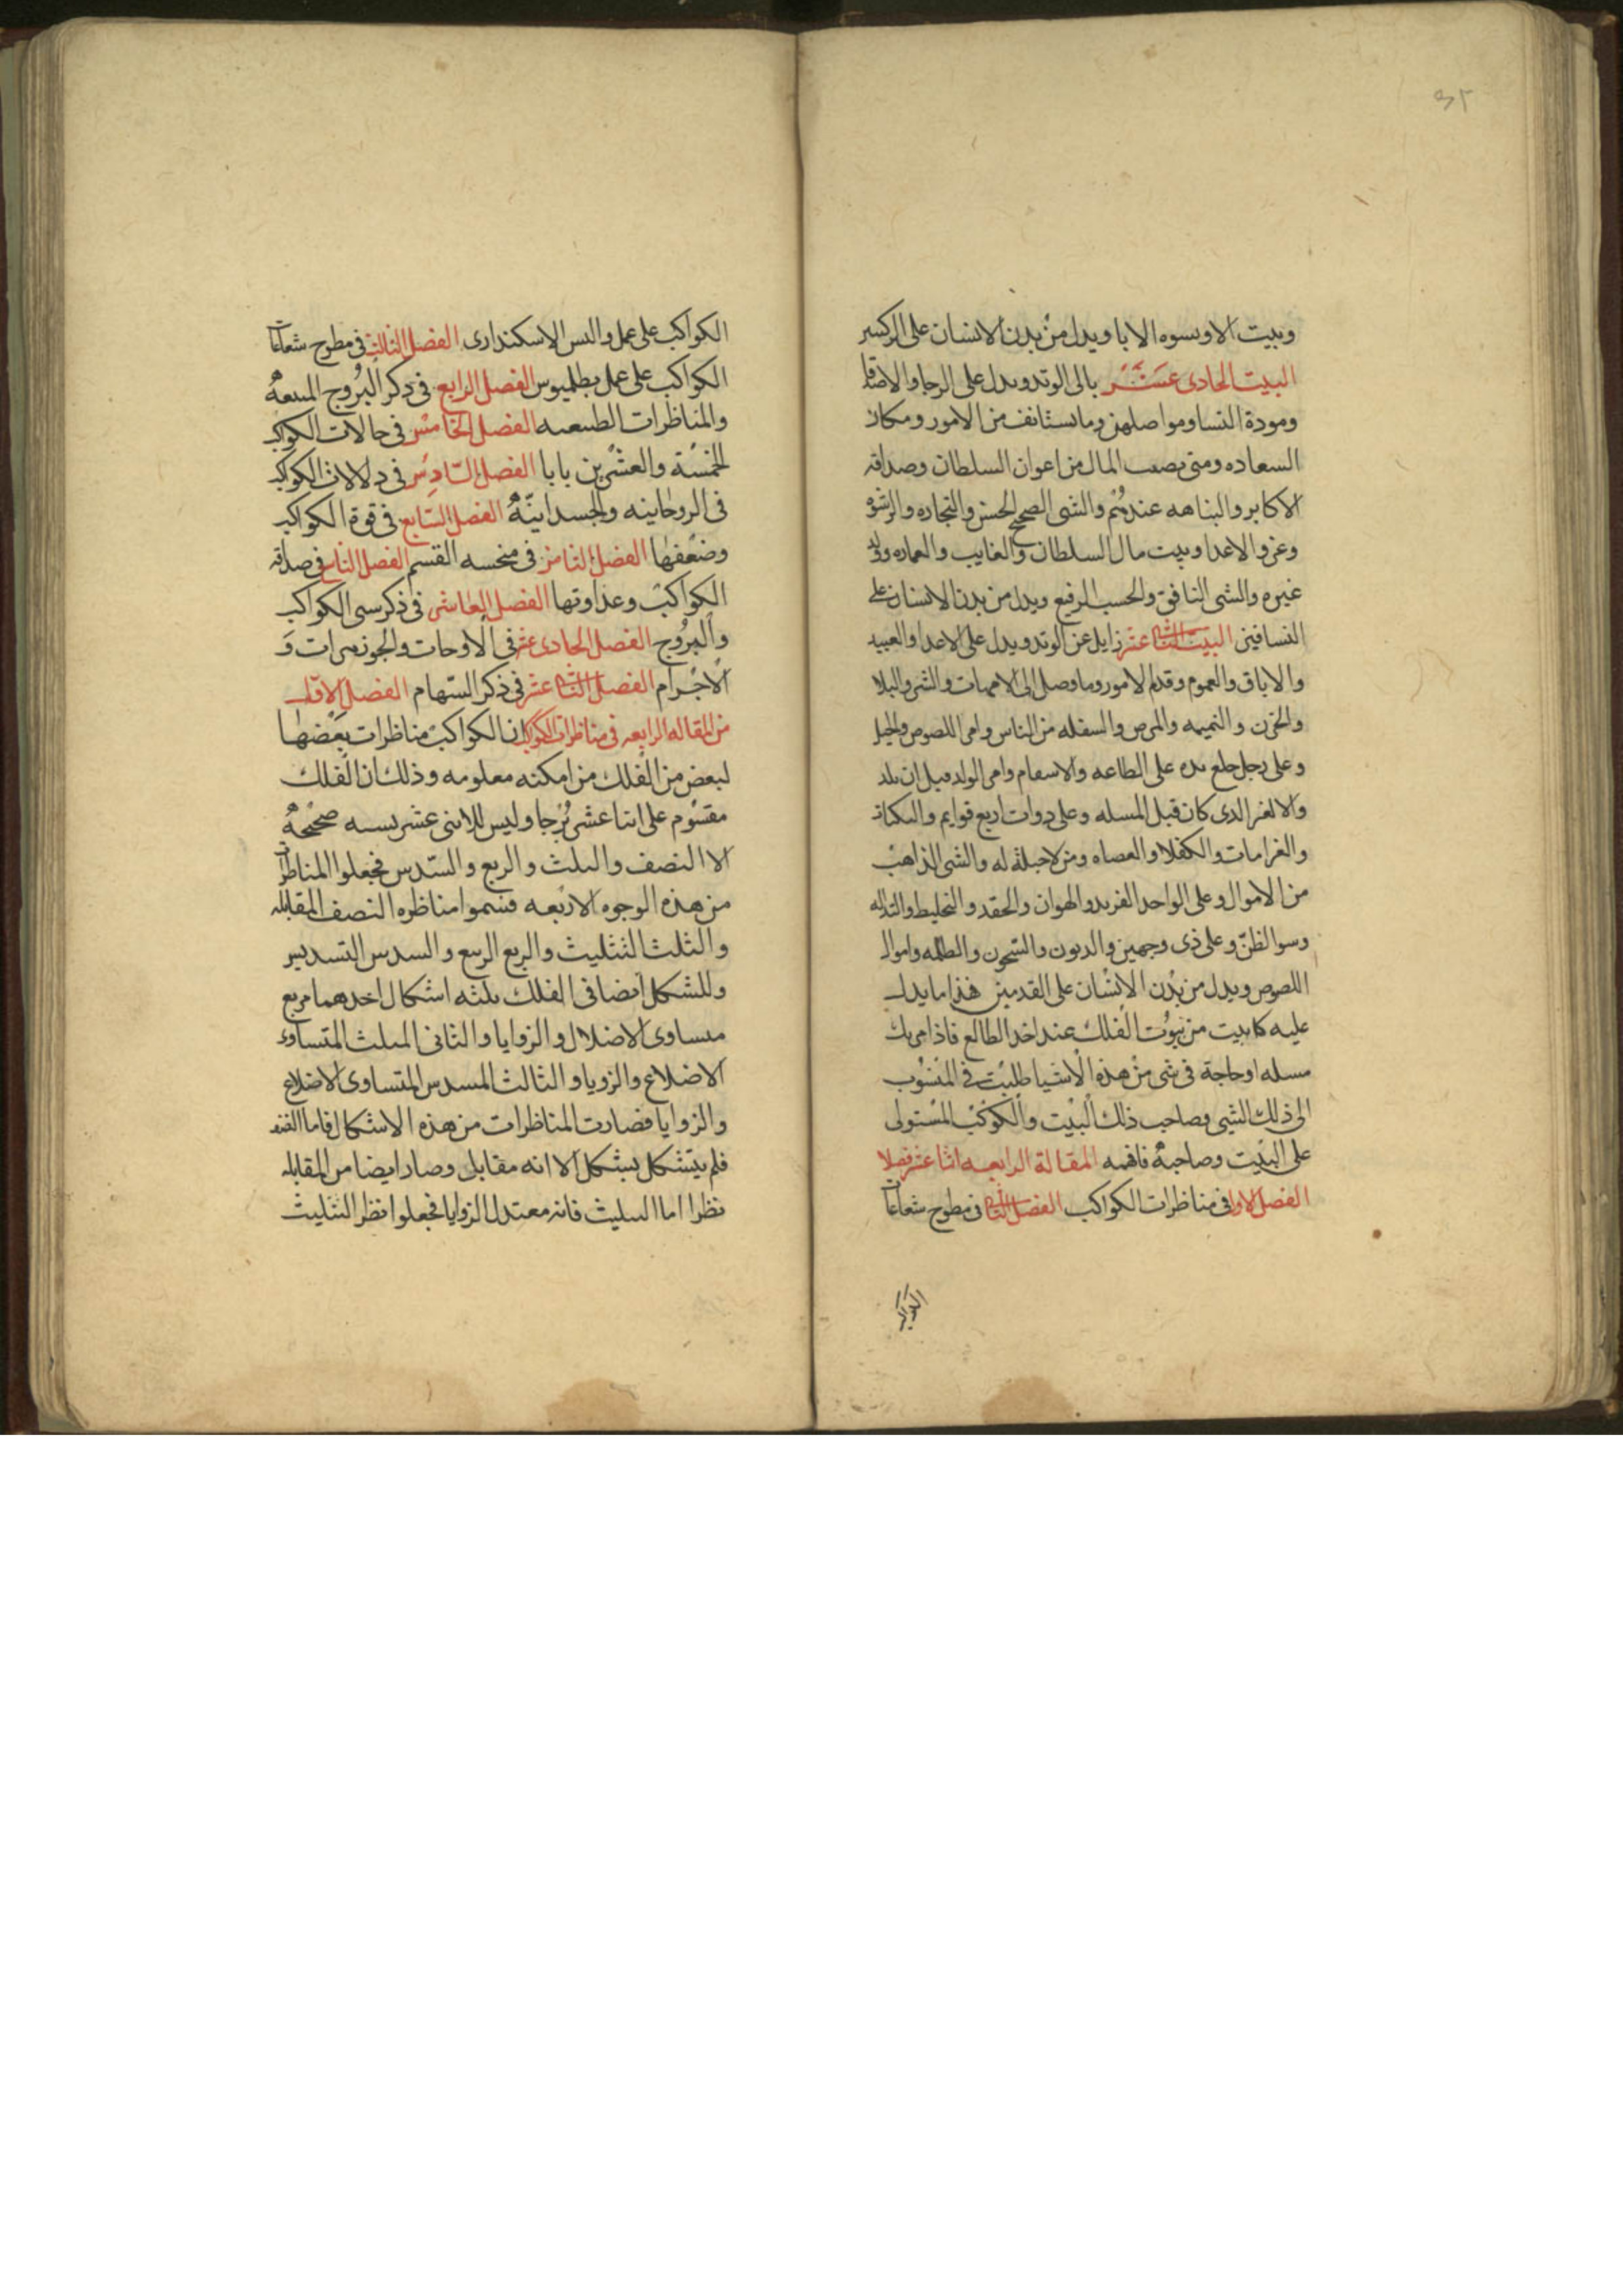 ٣٢
وبيت الاو ونسوه الابا ويدل من بدن الانسان على الركبتين
البيت الحادى عشر يالى الوتد ويدل على الرجا والاصدقا
ومودة النسا ومواصلهن وما يستانف من الامور ومكان
السعاده ومتى يصيب المال من اعوان السلطان وصداقه
الاكابر والنباهه عندهم والشى الصحيح الحسن والتجاره والرشوه
وعز والاعدا وبيت مال السلطان والغايب والعماره وولد
غيره والشى النافق والحسب الرفيع ويدل من بدن الانسان على
الساقين البيت الثانى عشر زايل عن الوتد ويدل على الاعدا والعبيد
والاباق والغموم وقدم الامور وما وصل الى الامهات والشر والبلا
والحزن والنميمه والمرض والسفله من الناس وامر اللصوص والحيل
وعلى رجل خلع يده على الطاعه والاسقام وامر الولد قبل ان يلد
والالغز الذى كان قبل المسله وعلى دوات اربع قوايم والمكان
والغرامات والكفلا والعصاه ومن لا حيلة له والشى الذاهب
من الاموال وعلى الواحد الفريد والهوان والحقد والتخليط والنذاله
وسو الظن وعلى ذى وجهين والديون والسجون والظلمه واموال
اللصوص ويدل من بدن الانسان على القدمين فهذا ما يدل
عليه كل بيت من بيوت الفلك عند اخد الطالع فاذا مر بك
مسله او حاجة فى شى من هذه الاشيا طلبت فى المنسوب
الى ذلك الشى وصاحب ذلك البيت والكوكب المستولى
على البيت وصاحبه فافهمه المقالة الرابعه اثنا عشر فصلا
الفصل الاول فى مناظرات الكواكب الفصل الثانى فى مطرح شعاعات
الكواكب
الكواكب على عمل واليس الاسكندارى الفصل الثالث فى مطرح شعاعات
الكواكب على عمل بطلميوس الفصل الرابع فى ذكر البروج المتفقه
والمناظرات الطبيعيه الفصل الخامس فى حالات الكواكب
الخمسة والعشرين بابا الفصل السادس فى دلالات الكواكب
فى الروحانيه والجسدانيه الفصل السابع فى قوة الكواكب
وضعفها الفصل الثامن فى منحسه القسم الفصل التاسع فى صداقه
الكواكب وعداوتها الفصل العاشر فى ذكر سنى الكواكب
والبروج الفصل الحادى عشر فى الاوجات والجوزهرات و
الاجرام الفصل الثانى عشر فى ذكر السهام الفصل الاول
من المقاله الرابعه فى مناظرات الكواكب ان الكواكب مناظرات بعضها
لبعض من الفلك من امكنه معلومه وذلك ان الفلك
مقسوم على اثنا عشر برجا وليس للاثنى عشر نسبه صحيحه
الا النصف والثلث والربع والسدس فجعلوا المناظرات
من هذه الوجوه الاربعه فسموا مناظره النصف المقابله
والثلث التثليث والربع الربيع والسدس التسديس
وللشكل ايضا فى الفلك ثلثه اشكال احدهما مربع
متساوى الاضلال والزوايا والثانى المثلث المتساوى
الاضلاع والزويا والثالث المسدس المتساوى الاضلاع
والزوايا فصارت المناظرات من هذه الاشكال فاما النصف
فلم يتشكل بشكل الا انه مقابل وصار ايضا من المقابله
نظرا اما التثليث فانه معتدل الزوايا فجعلوا نظر التثليث